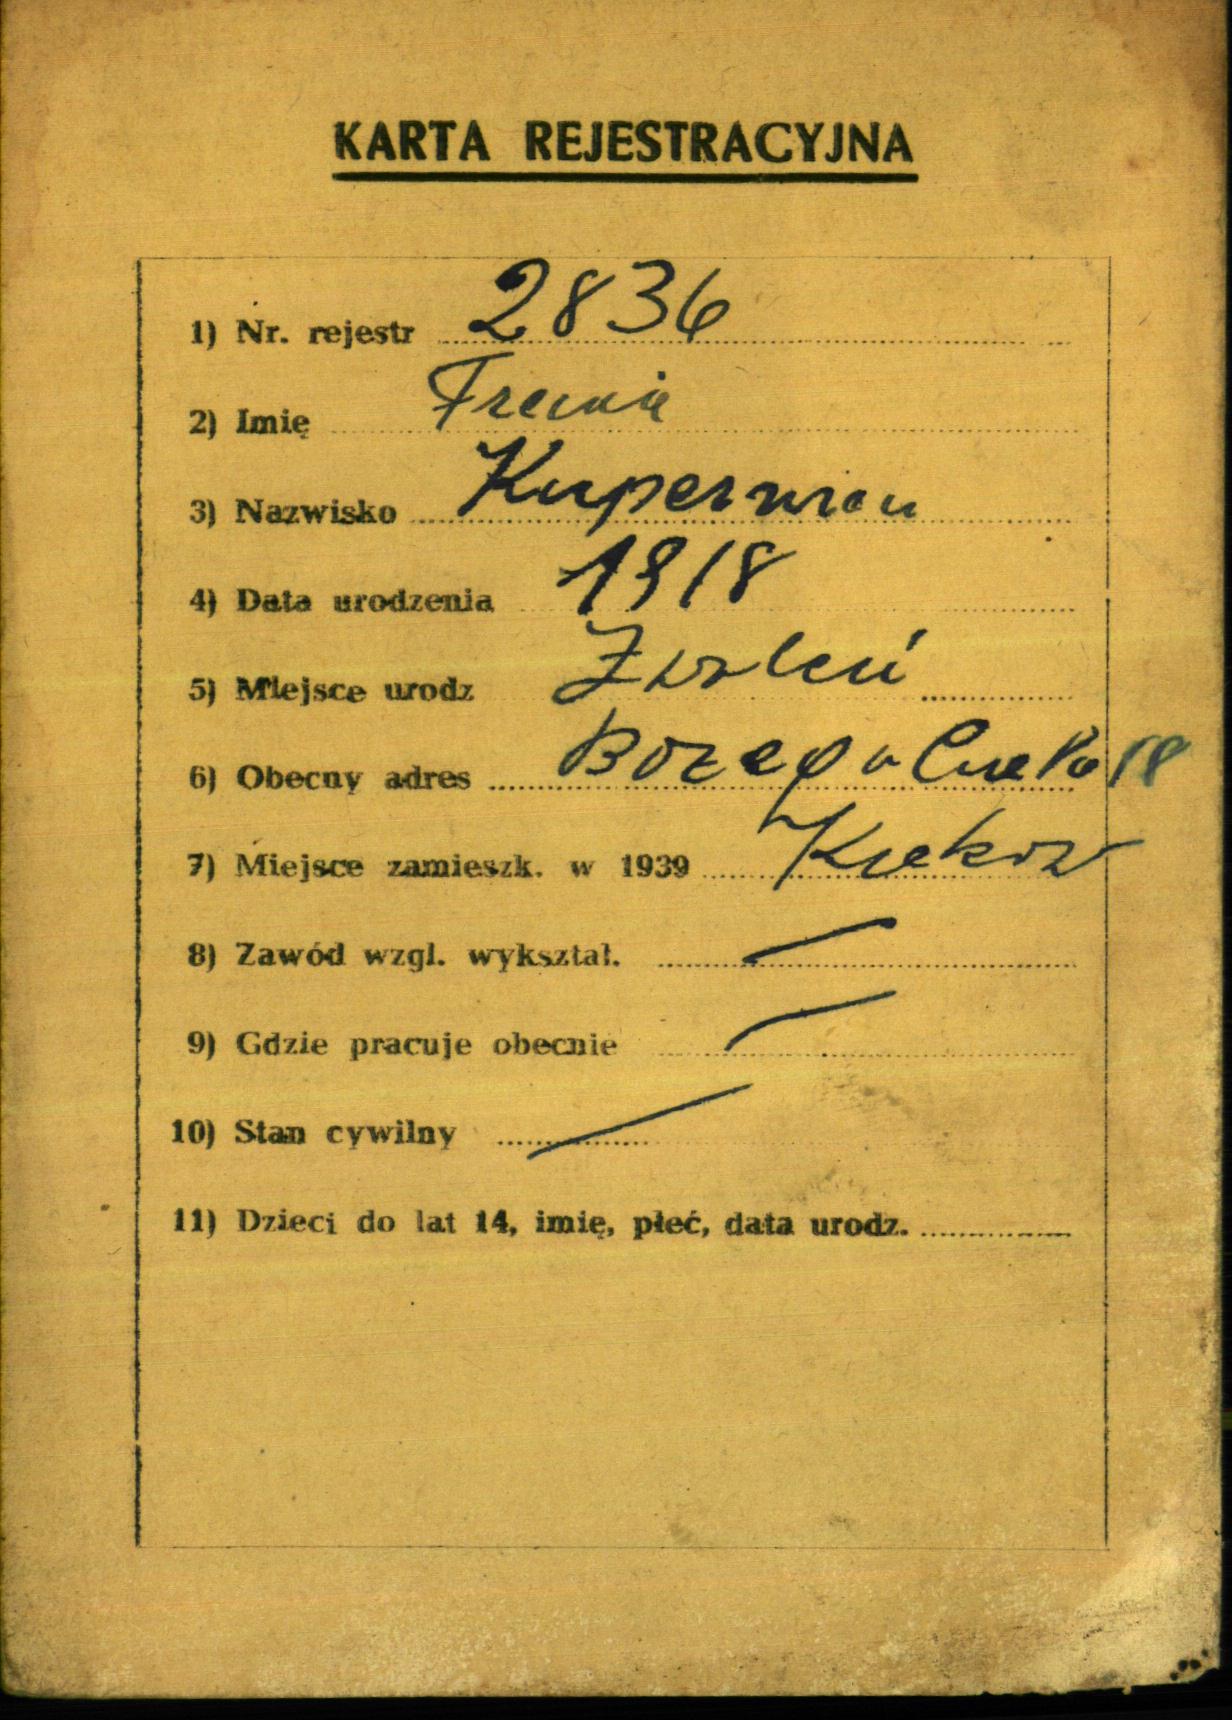 KARTA REJESTRACYJNA
1) Nr. rejestr 2836
2) Imię Frania
3) Nazwisko Kuperman
4) Data urodzenia 1918
5) Miejsce urodz Zwoleń
6) Obecny adres Bożego Ciała 18
7) Miejsce zamieszk. w 1939 Krakow
8) Zawód wzgl. wykształ. —
9) Gdzie pracuje obecnie —
10) Stan cywilny —
11) Dzieci do lat 14, imię, płeć, data urodz.